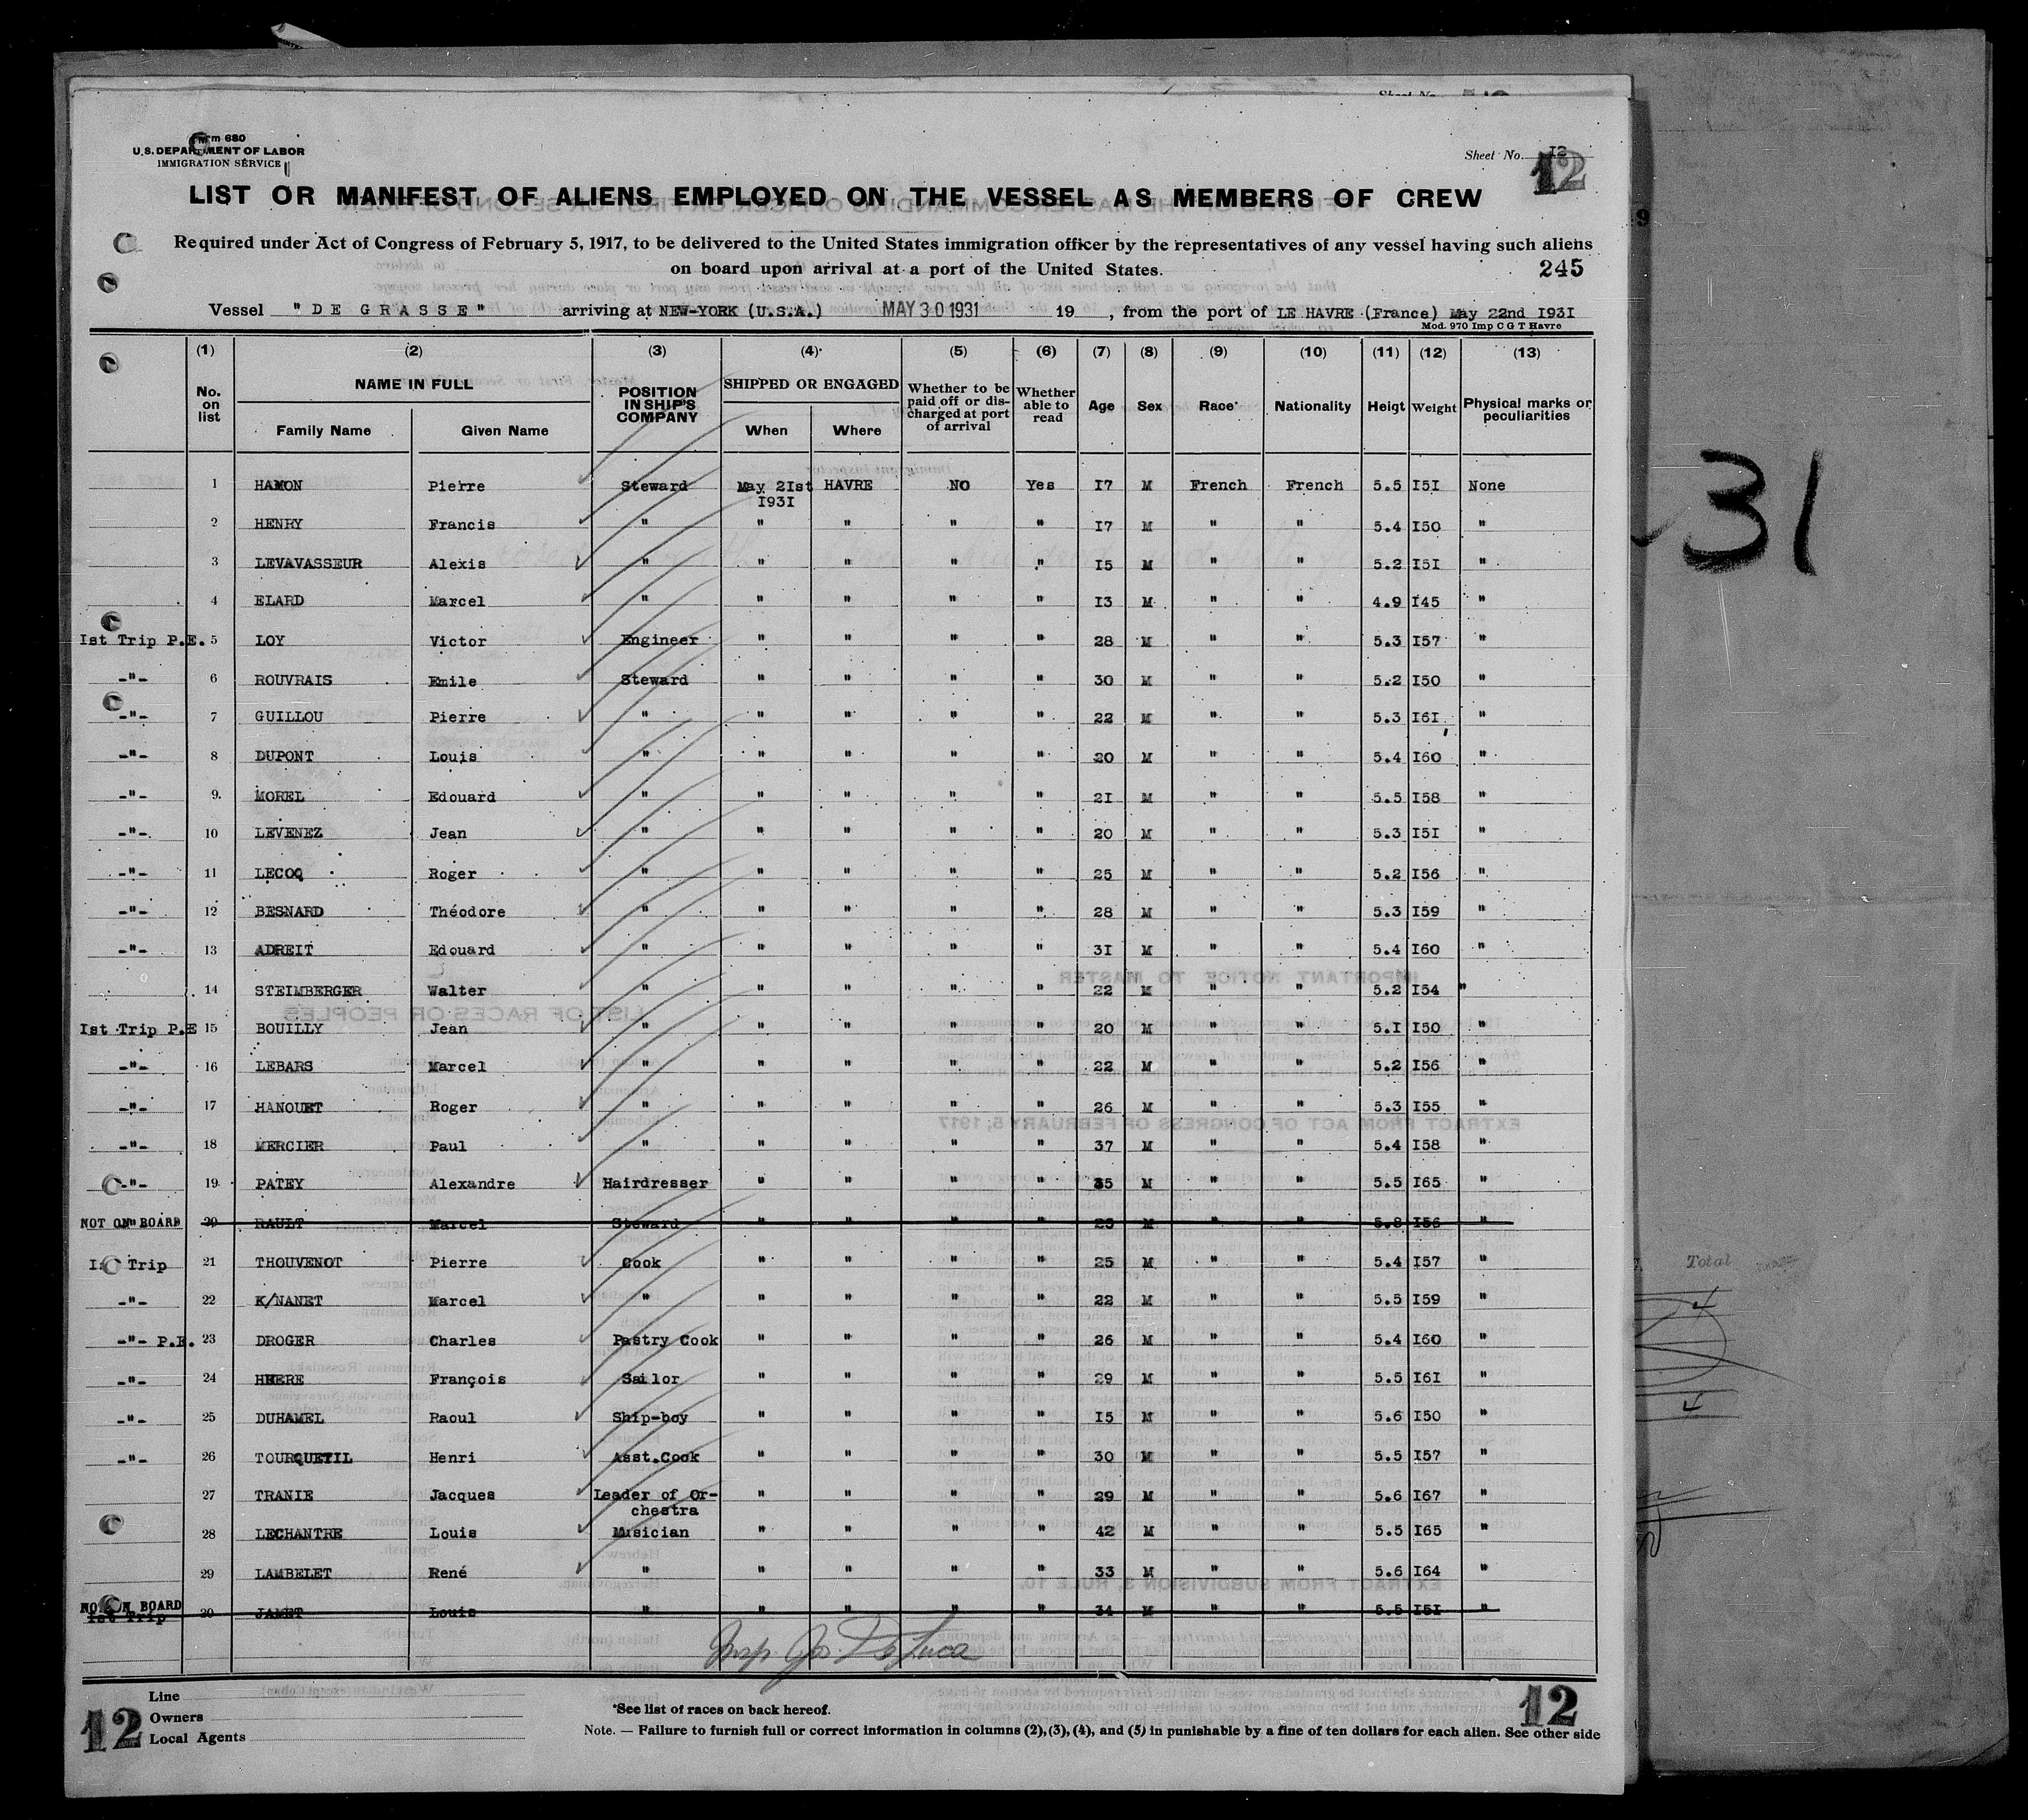 Form 680
U.S. DEPARTMENT OF LABOR
IMMIGRATION SERVICE
Sheet No. I2
12
LIST OR MANIFEST OF ALIENS EMPLOYED ON THE VESSEL AS MEMBERS OF CREW
Required under Act of Congress of February 5, 1917, to be delivered to the United States immigration officer by the representatives of any vessel having such aliens
on board upon arrival at a port of the United States.
245
Vessel "DE GRASSE" arriving at NEW-YORK (U.S.A.) MAY 30 1931 19 , from the port of LE HAVRE (France) May 22nd I93I
Mod. 970 Imp C G T Havre
(1) (2) (3) (4) (5) (6) (7) (8) (9) (10) (11) (12) (13)
No. on list NAME IN FULL Family Name Given Name POSITION IN SHIP'S COMPANY SHIPPED OR ENGAGED When Where Whether to be paid off or discharged at port of arrival Whether able to read Age Sex Race* Nationality Heigt Weight Physical marks or peculiarities
1 HAMON Pierre Steward May 2Ist I93I HAVRE NO Yes I7 M French French 5.5 I5I None
2 HENRY Francis " " " " " I7 M " " 5.4 I50 "
3 LEVAVASSEUR Alexis " " " " " I5 M " " 5.2 I5I "
4 ELARD Marcel " " " " " I3 M " " 4.9 I45 "
Ist Trip P.E. 5 LOY Victor Engineer " " " " 28 M " " 5.3 I57 "
-"- 6 ROUVRAIS Emile Steward " " " " 30 M " " 5.2 I50 "
-"- 7 GUILLOU Pierre " " " " " 22 M " " 5.3 I6I "
-"- 8 DUPONT Louis " " " " " 20 M " " 5.4 I60 "
-"- 9. MOREL Edouard " " " " " 2I M " " 5.5 I58 "
-"- 10 LEVENEZ Jean " " " " " 20 M " " 5.3 I5I "
-"- 11 LECOQ Roger " " " " " 25 M " " 5.2 I56 "
-"- 12 BESNARD Théodore " " " " " 28 M " " 5.3 I59 "
-"- 13 ADREIT Edouard " " " " " 3I M " " 5.4 I60 "
14 STEIMBERGER Walter " " " " " 22 M " " 5.2 I54 "
Ist Trip P.E 15 BOUILLY Jean " " " " " 20 M " " 5.I I50 "
-"- 16 LEBARS Marcel " " " " " 22 M " " 5.2 I56 "
-"- 17 HANOUET Roger " " " " " 26 M " " 5.3 I55 "
-"- 18 MERCIER Paul " " " " " 37 M " " 5.4 I58 "
-"- 19 PATEY Alexandre Hairdresser " " " " 35 M " " 5.5 I65 "
NOT ON BOARD 20 RAULT Marcel Steward " " " " M " " I56 "
Ist Trip 21 THOUVENOT Pierre Cook " " " " 25 M " " 5.4 I57 "
-"- 22 K/NANET Marcel " " " " " 22 M " " 5.5 I59 "
-"- P.E. 23 DROGER Charles Pastry Cook " " " " 26 M " " 5.4 I60 "
-"- 24 HEERE François Sailor " " " " 29 M " " 5.5 I6I "
-"- 25 DUHAMEL Raoul Ship-boy " " " " I5 M " " 5.6 I50 "
-"- 26 TOURQUETIL Henri Asst.Cook " " " " 30 M " " 5.5 I57 "
27 TRANIE Jacques Leader of Or-chestra " " " " 29 M " " 5.6 I67 "
28 LECHANTRE Louis Musician " " " " 42 M " " 5.5 I65 "
29 LAMBELET René " " " " " 33 M " " 5.6 I64 "
NOT ON BOARD Ist Trip 30 JAMET Louis " " " " " 34 M " " 5.5 I5I "
Insp. Jos. De Luca
Line
Owners
Local Agents
12
*See list of races on back hereof.
Note. — Failure to furnish full or correct information in columns (2), (3), (4), and (5) in punishable by a fine of ten dollars for each alien. See other side
12
31
Total